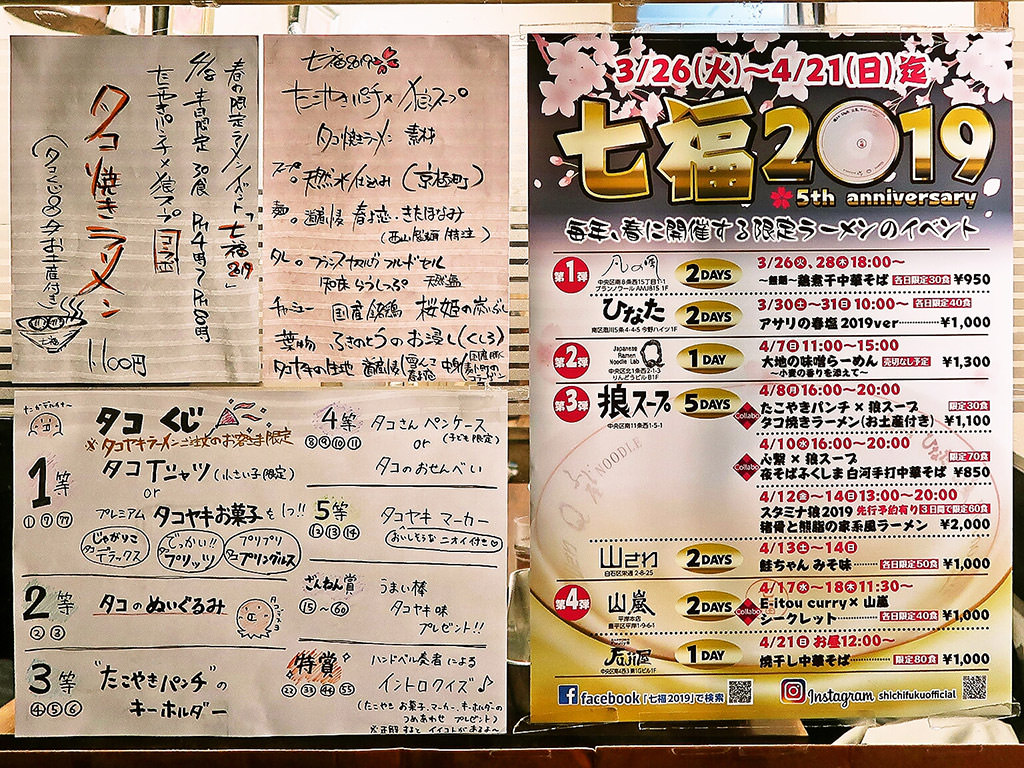 春の限定ラーメンイベント「七福2019」
4/8 本日限定 30食 PM4時〜PM8時
たこやきパンチ×狼スープ コラボ
タコ焼きラーメン
(タコくじ&タコお土産付き)
1,100円
七福2019
たこやきパンチ×狼スープ
タコ焼きラーメン 素材
スープ。天然水仕込み (京極町)
チャーシュー 国産銘鶏 桜姫の炭いぶし
葉物 ふきのとうのお浸し(くしろ)
タコくじ
※タコヤキラーメンご注文のお客さま限定
1等 ①⑦⑦⑦
タコTシャツ(小さい子限定)
or
プレミアム タコヤキお菓子を1つ!!
じゃがりこ タコデラックス
でっかい!! プリッツ
プリプリ タコプリングルス
2等 ②③
タコのぬいぐるみ
3等 ④⑤⑥
"たこやきパンチ"の
キーホルダー
4等 ⑧⑨⑩⑪
タコさんペンケース
or (子ども限定)
タコのおせんべい
5等 ⑫⑬⑭
タコヤキ マーカー
おいしそうなニオイ付き♡
ざんねん賞
⑮〜60
うまい棒
タコヤキ味
プレゼント!!
特賞
22 33 44 55
ハンドベル奏者による
イントロクイズ♪
(たこやきお菓子、マーカー、キーホルダーの
つめあわせ プレゼント)
※正解するとイイコトがあるよ〜
3/26(火)〜4/21(日)迄
七福2019
5th anniversary
毎年、春に開催する限定ラーメンのイベント
第1弾 凡の風 2DAYS 3/26火、28木18:00〜
中央区南8条西15丁目1-1
ブランノワールAMJ815 1F
〜鮭麺〜鶏煮干中華そば 各日限定30食 ¥950
ひなた 2DAYS 3/30土〜31日10:00〜 各日限定40食
南区澄川5条4-4-5 今野ハイツ1F
アサリの春塩2019ver ¥1,000
第2弾 Japanese Ramen Noodle Lab Q 1DAY 4/7日11:00〜15:00
中央区北1条西2-1-3
りんどうビルB1F
大地の味噌らーめん 売切なし予定 ¥1,300
〜小麦の香りを添えて〜
第3弾 狼スープ 5DAYS 4/8月16:00〜20:00
中央区南11条西1-5-1
Collabo たこやきパンチ×狼スープ 限定30食
タコ焼きラーメン(お土産付き) ¥1,100
4/10水16:00〜20:00
Collabo 心繋×狼スープ 限定70食
夜そばふくしま白河手打中華そば ¥850
4/12金〜14日13:00〜20:00
スタミナ狼2019 先行予約有り 3日間で限定60食
猪骨と熊脂の家系風ラーメン ¥2,000
山さわ 2DAYS 4/13土〜14日
白石区栄通2-8-25
鮭ちゃん みそ味 各日限定50食 ¥1,000
第4弾 山嵐 2DAYS 4/17水〜18木11:30〜
平岸本店
豊平区平岸1-9-6-1
Collabo E-itou curry×山嵐
シークレット 各日限定40食 ¥1,000
Fuji屋 1DAY 4/21日お昼12:00〜
中央区南4西3 第1Gビル1F
焼干し中華そば 限定80食 ¥1,000
facebook「七福2019」で検索
Instagram shichifukuofficial